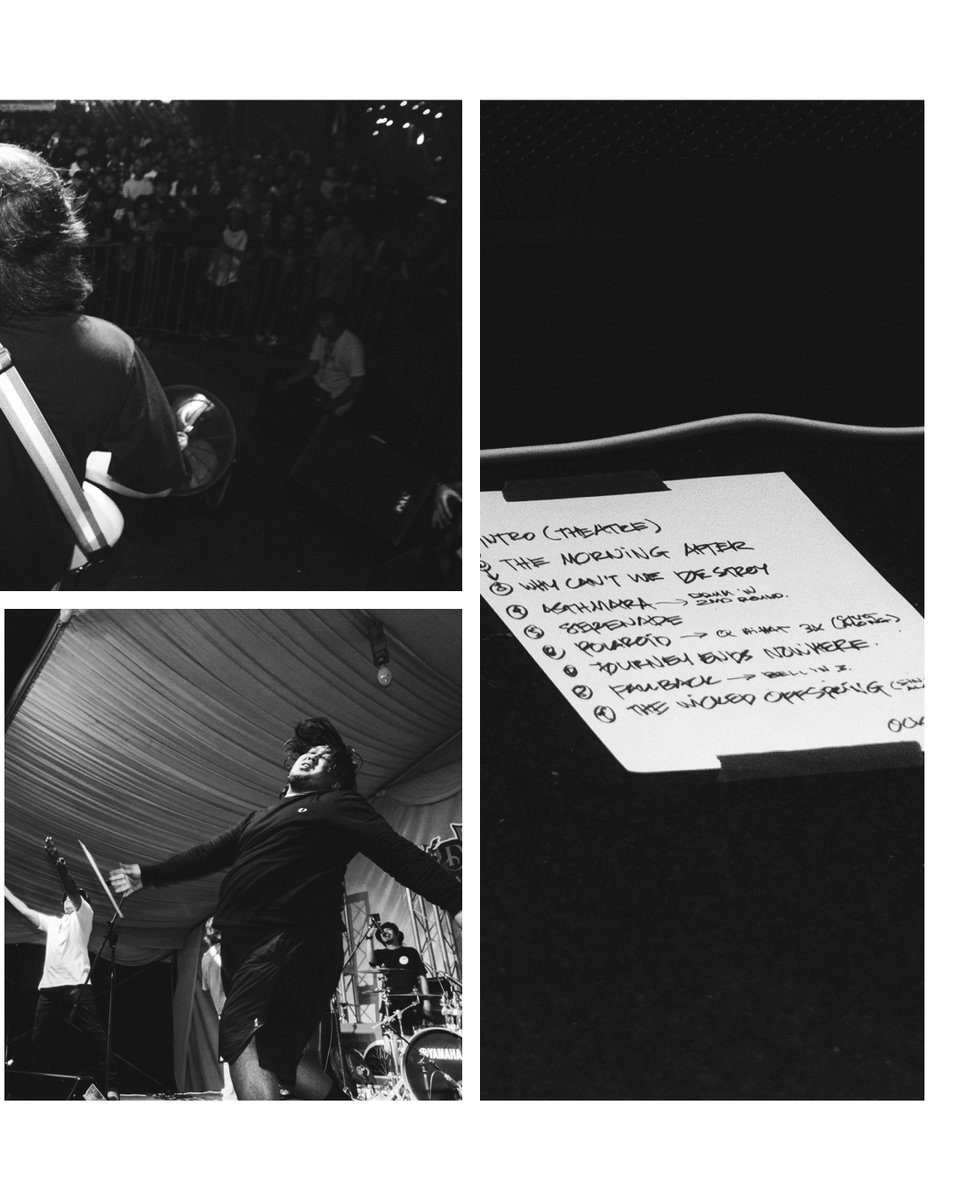 INTRO (THEATRE)
THE MORNING AFTER
③ WHY CAN'T WE DESTROY
④ ASTHMARA → DRUM IN 2ND ROUND.
⑤ SERENADE
POLAROID → 3X
JOURNEY ENDS NOWHERE.
⑧ FALLBACK → BELL IN 2.
⑨ THE WICKED OFFSPRING
YAMAHA